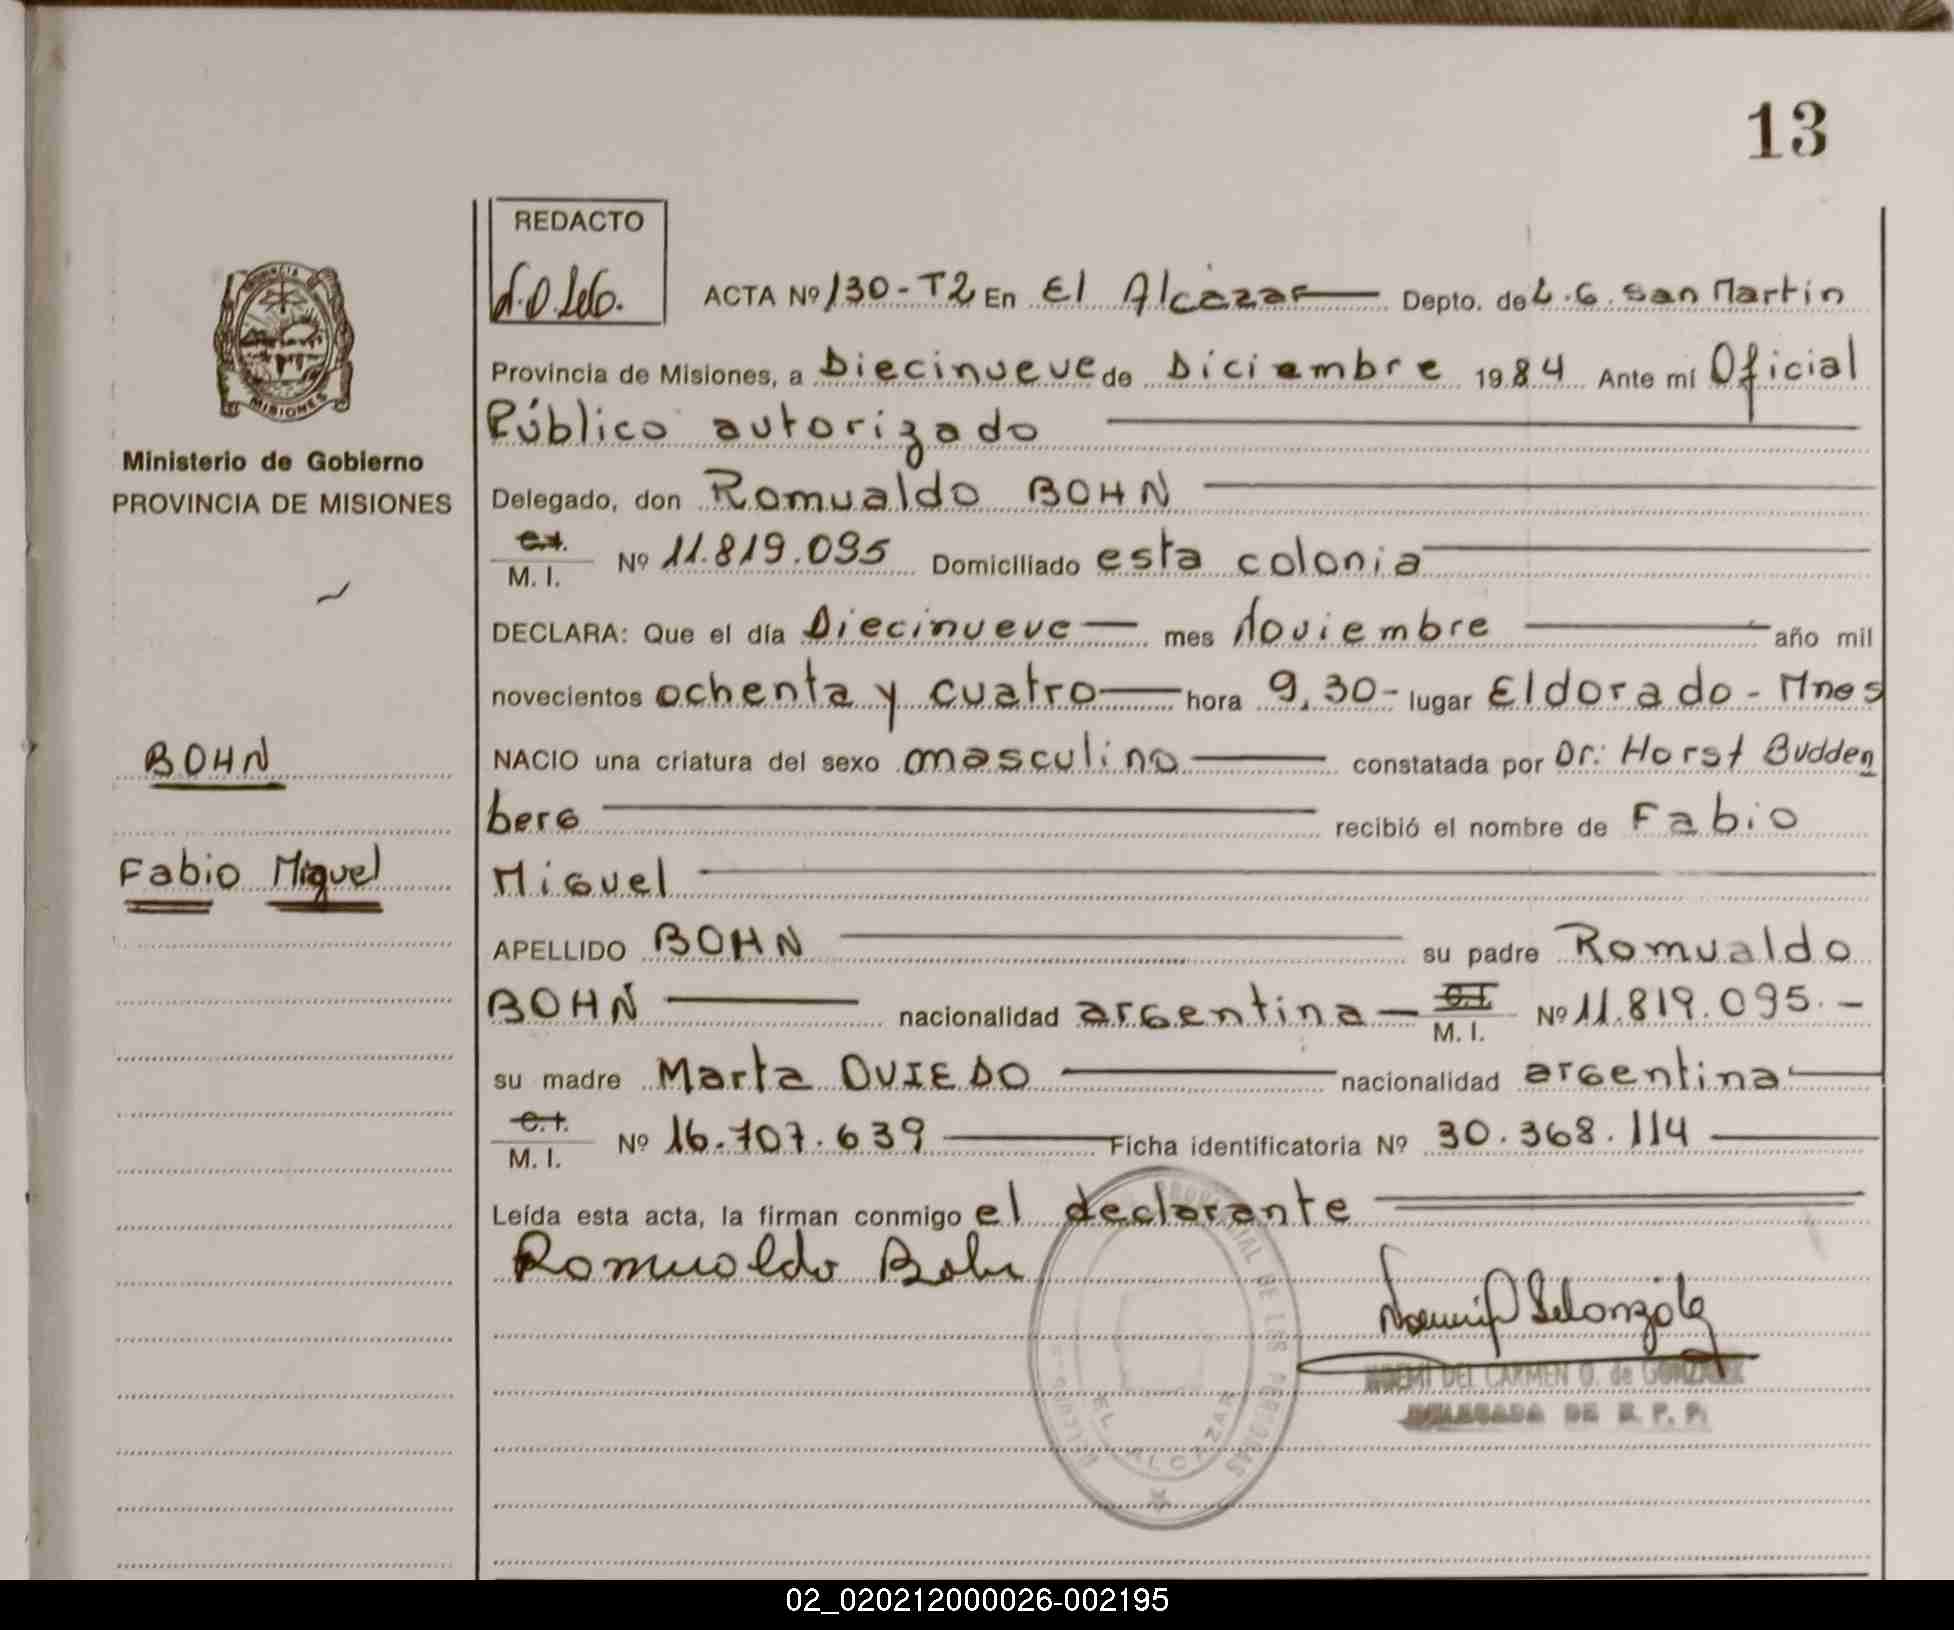 13
REDACTO
ACTA Nº 130-T2 En El Alcázar Depto. de L.G. San Martín
Provincia de Misiones, a Diecinueve de Diciembre 1984 Ante mí Oficial
Público autorizado
Ministerio de Gobierno
PROVINCIA DE MISIONES
Delegado, don Romualdo BOHN
C.I.
M. I. Nº 11.819.095 Domiciliado esta colonia
DECLARA: Que el día Diecinueve mes Noviembre año mil
novecientos ochenta y cuatro hora 9,30- lugar Eldorado - Mnes
BOHN
NACIO una criatura del sexo masculino constatada por Dr: Horst Budden
berg recibió el nombre de Fabio
Fabio Miguel
Miguel
APELLIDO BOHN su padre Romualdo
BOHN nacionalidad argentina C.I. M. I. Nº 11.819.095.-
su madre Marta OVIEDO nacionalidad argentina
C.I.
M. I. Nº 16.707.639 Ficha identificatoria Nº 30.368.114
Leída esta acta, la firman conmigo el declarante
Romualdo Bohn
NOEMI DEL CARMEN O. de GONZALEZ
DELEGADA DE R. P. P.
PROVINCIAL DE LAS PERSONAS
EL ALCAZAR
MISIONES
02_020212000026-002195